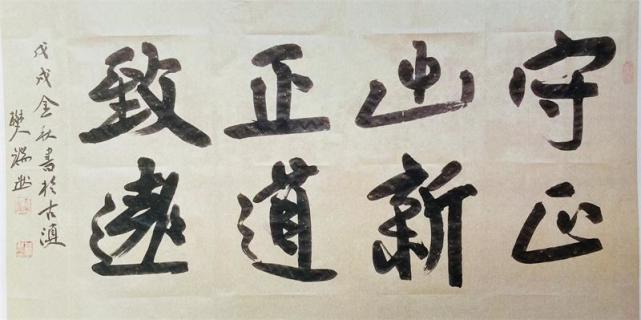 守正
出新
正道
致远
戊戌金秋書於古滇
樊瑞